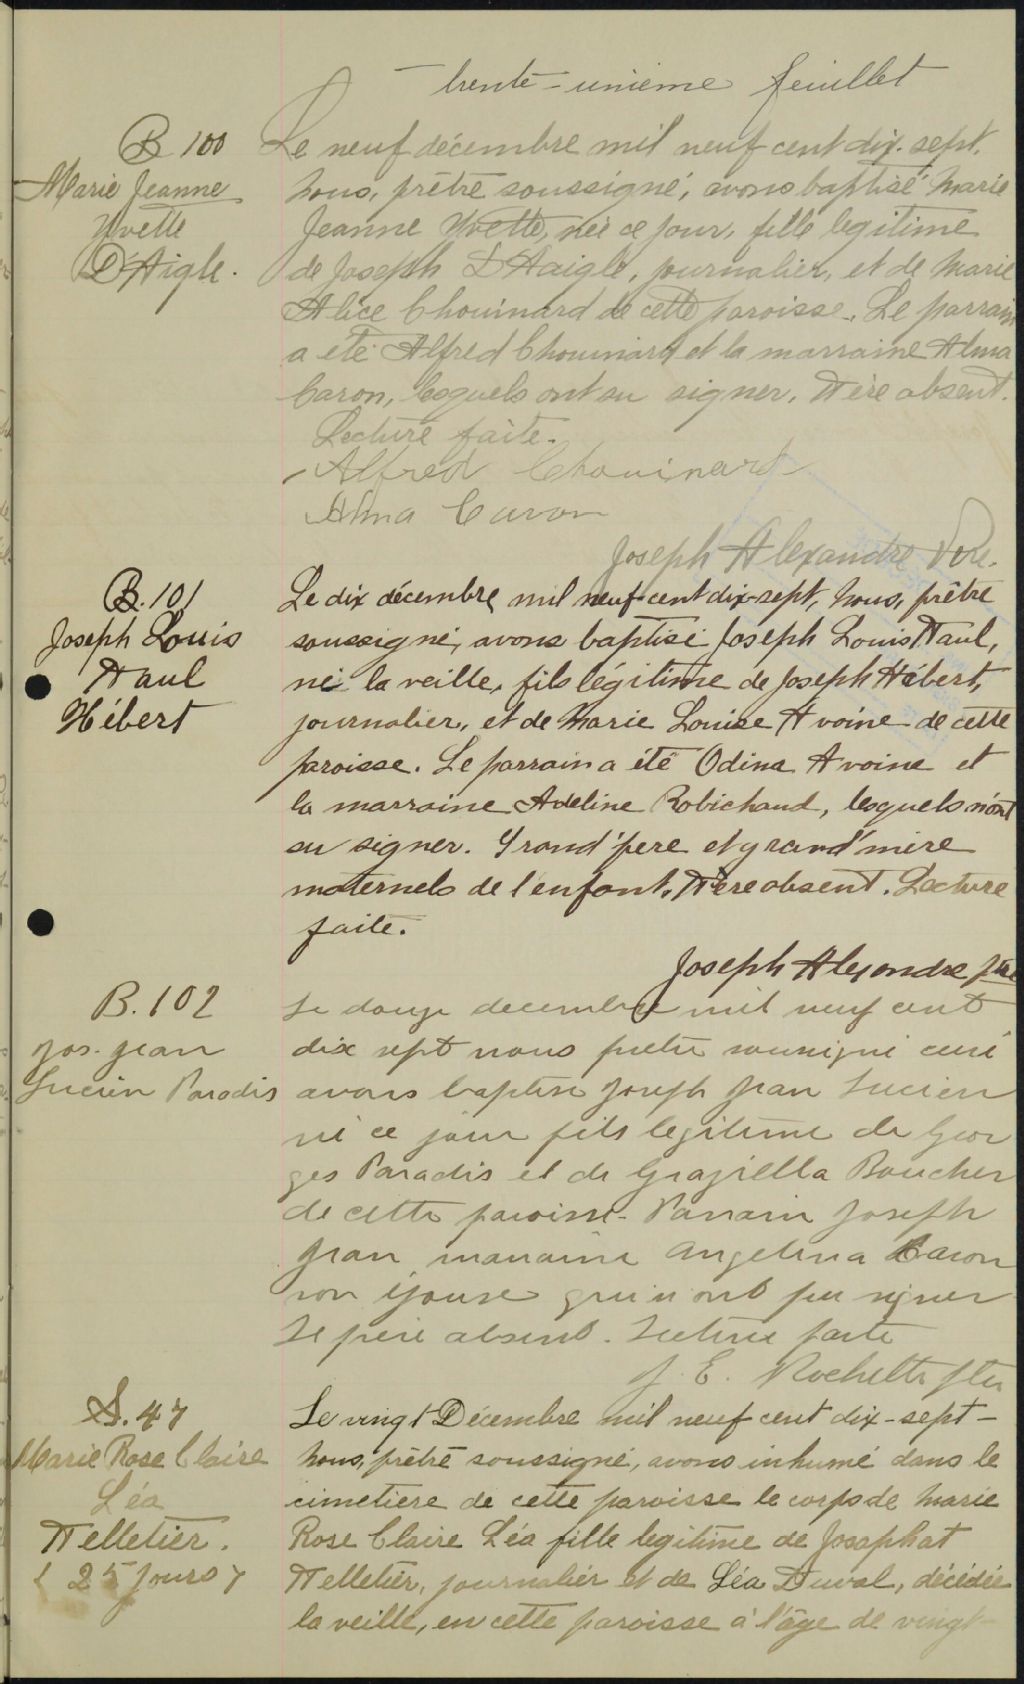 trente-unième feuillet
B 100
Marie Jeanne
Yvette
D'Aigle.
Le neuf décembre mil neuf cent dix-sept,
nous, prêtre soussigné, avons baptisé Marie
Jeanne Yvette, née ce jour, fille légitime
de Joseph D'Aaigle, journalier, et de Marie
Alice Chouinard de cette paroisse. Le parrain
a été Alfred Chouinard et la marraine Alma
Caron, lesquels ont su signer. Père absent.
Lecture faite.
Alfred Chouinard
Alma Caron
Joseph Alexandre Ptre.
B. 101
Joseph Louis
Paul
Hébert
Le dix décembre mil neuf cent dix-sept, nous, prêtre
soussigné, avons baptisé Joseph Louis Paul,
né la veille, fils légitime de Joseph Hébert,
journalier, et de Marie Louise Avoine de cette
paroisse. Le parrain a été Odina Avoine et
la marraine Adeline Robichaud, lesquels n'ont
su signer. Grand'père et grand'mère
maternels de l'enfant. Père absent. Lecture
faite.
Joseph Alexandre ptre
B. 102
Jos. Jean
Lucien Paradis
Le douze decembre mil neuf cent
dix sept nous pretre soussigné curé
avons baptisé Joseph Jean Lucien
né ce jour fils legitime de Geor
ges Paradis et de Graziella Boucher
de cette paroisse. Parrain Joseph
Jean marraine Angelina Caron
son épouse qui n ont pu signer
Le père absent. Lecture faite
J. E. Rochette ptre
S. 47
Marie Rose Claire
Léa
Pelletier.
( 25 jours )
Le vingt Décembre mil neuf cent dix-sept-
nous, prêtre soussigné, avons inhumé dans le
cimetière de cette paroisse le corps de Marie
Rose Claire Léa fille légitime de Josaphat
Pelletier, journalier et de Léa Duval, décédée
la veille, en cette paroisse à l'âge de vingt-